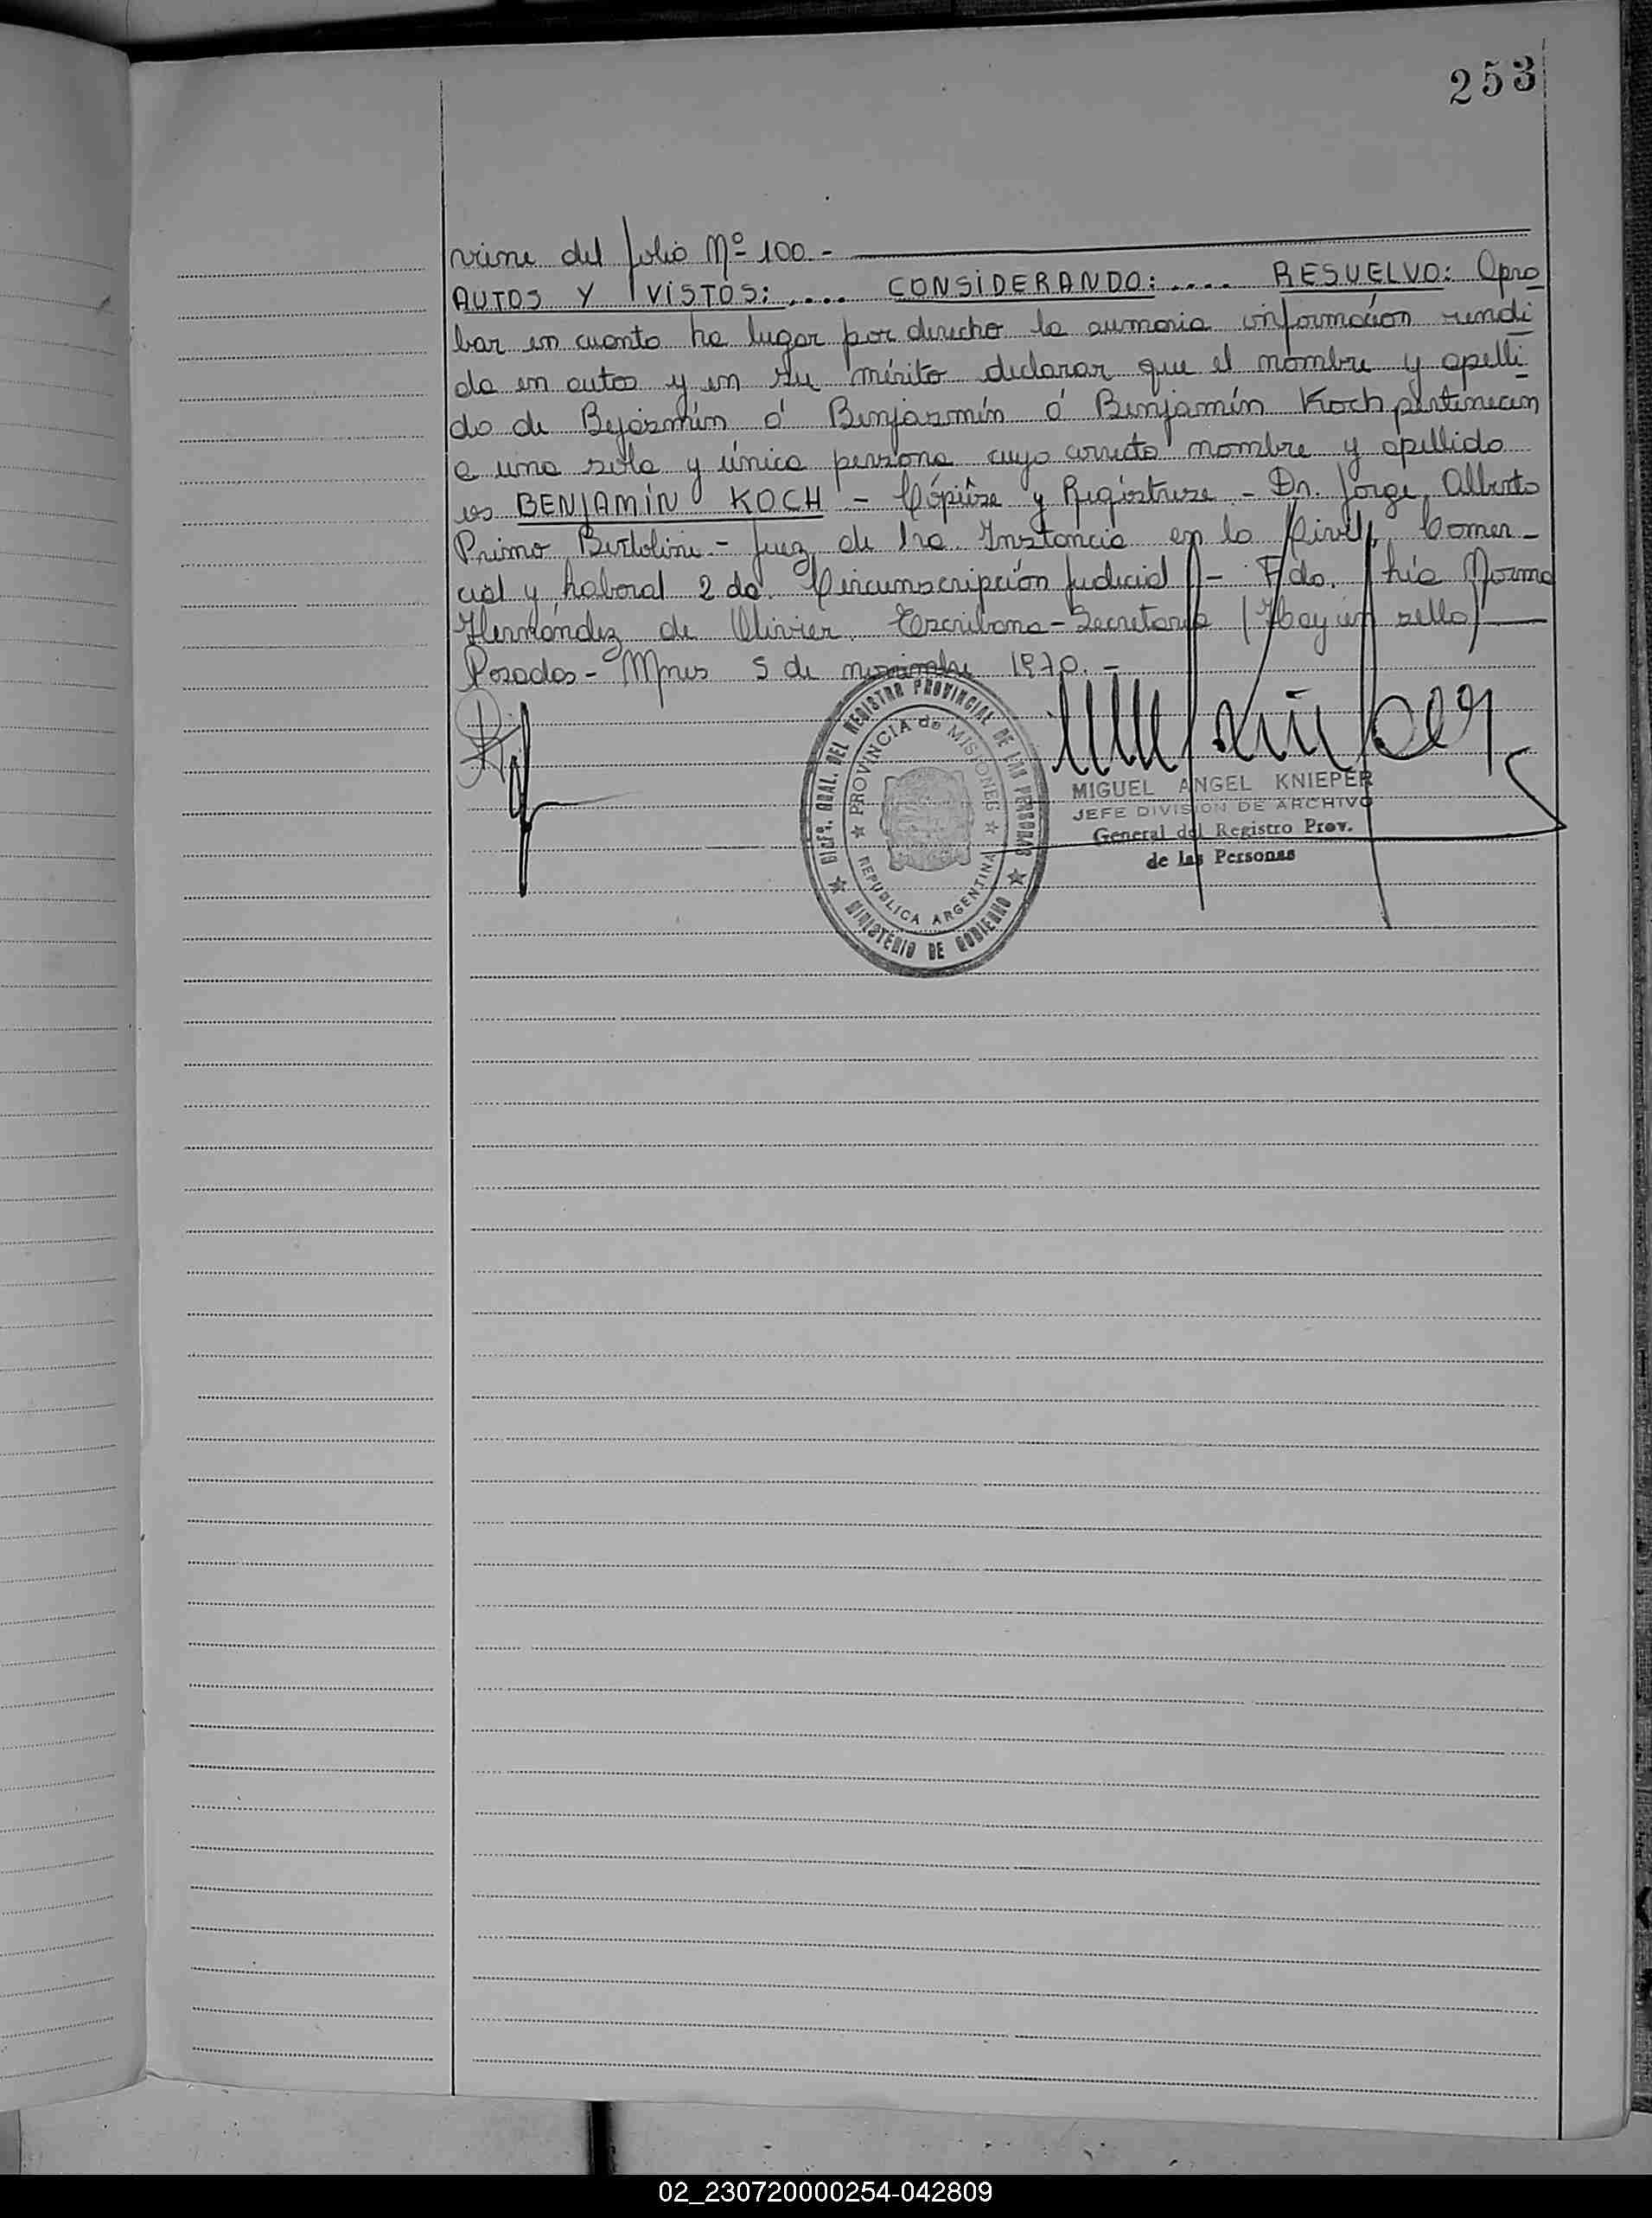 253
viene del folio Nº 100.-
AUTOS Y VISTOS: .... CONSIDERANDO: .... RESUELVO: Apro
bar en cuanto ha lugar por derecho la sumaria información rendi
da en autos y en su mérito declarar que el nombre y apelli
do de Bejasmín ó Benjasmín ó Benjamín Koch pertenecen
a una sola y única persona cuyo correcto nombre y apellido
es BENJAMÍN KOCH - Cópiese y Regístrese - Dr. Jorge Alberto
Primo Bertolini - Juez de 1ra. Instancia en lo Civil, Comer-
cial y Laboral 2da. Circunscripción Judicial - Fdo. Lía Norma
Hernández de Olivier Escribana-Secretaria (Hay un sello)
Posadas - Mnes 5 de noviembre 1970.-
DIREC. GRAL. DEL REGISTRO PROVINCIAL DE LAS PERSONAS
PROVINCIA de MISIONES
REPUBLICA ARGENTINA
MINISTERIO DE GOBIERNO
MIGUEL ANGEL KNIEPER
JEFE DIVISION DE ARCHIVO
General del Registro Prov.
de las Personas
02_230720000254-042809